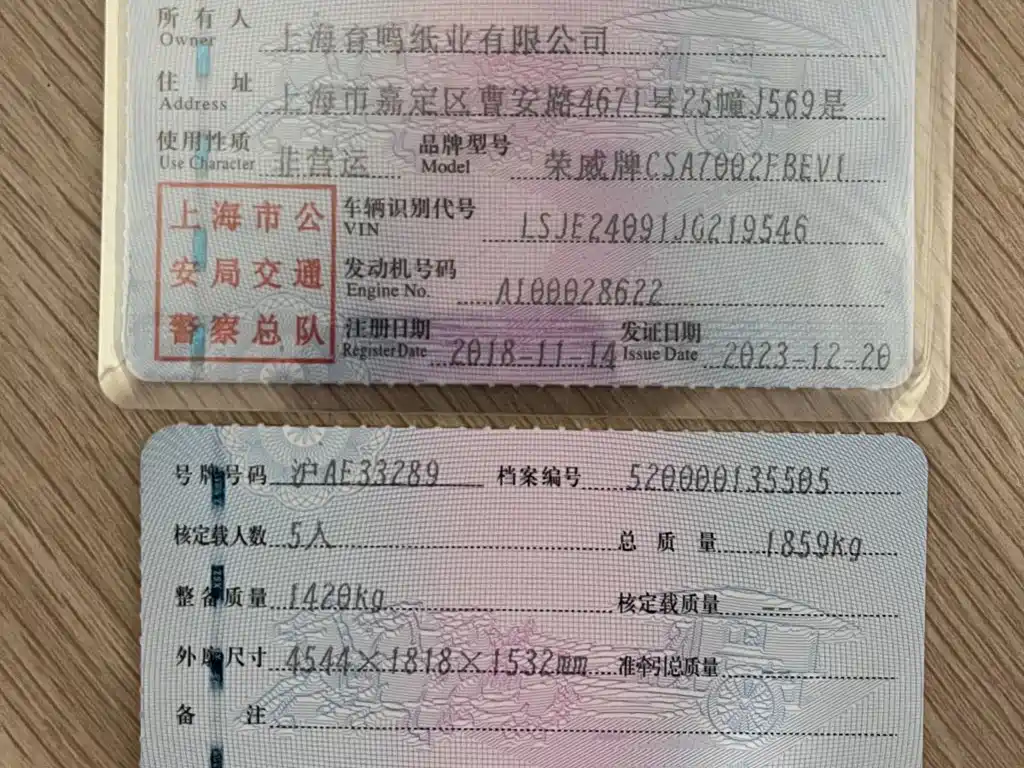 所有人 上海育鸣纸业有限公司
Owner
住址 上海市嘉定区曹安路4671号25幢J569是
Address
使用性质 非营运 品牌型号 荣威牌CSA7002FBEV1
Use Character Model
上海市公
安局交通
警察总队
车辆识别代号 LSJE24091JG219546
VIN
发动机号码 A100028622
Engine No.
注册日期 2018-11-14 发证日期 2023-12-20
Register Date Issue Date
号牌号码 沪AE33289 档案编号 520000135505
核定载人数 5人 总质量 1859kg
整备质量 1420kg 核定载质量 --
外廓尺寸 4544×1818×1532mm 准牵引总质量 --
备注